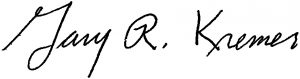 Gary R. Kremer